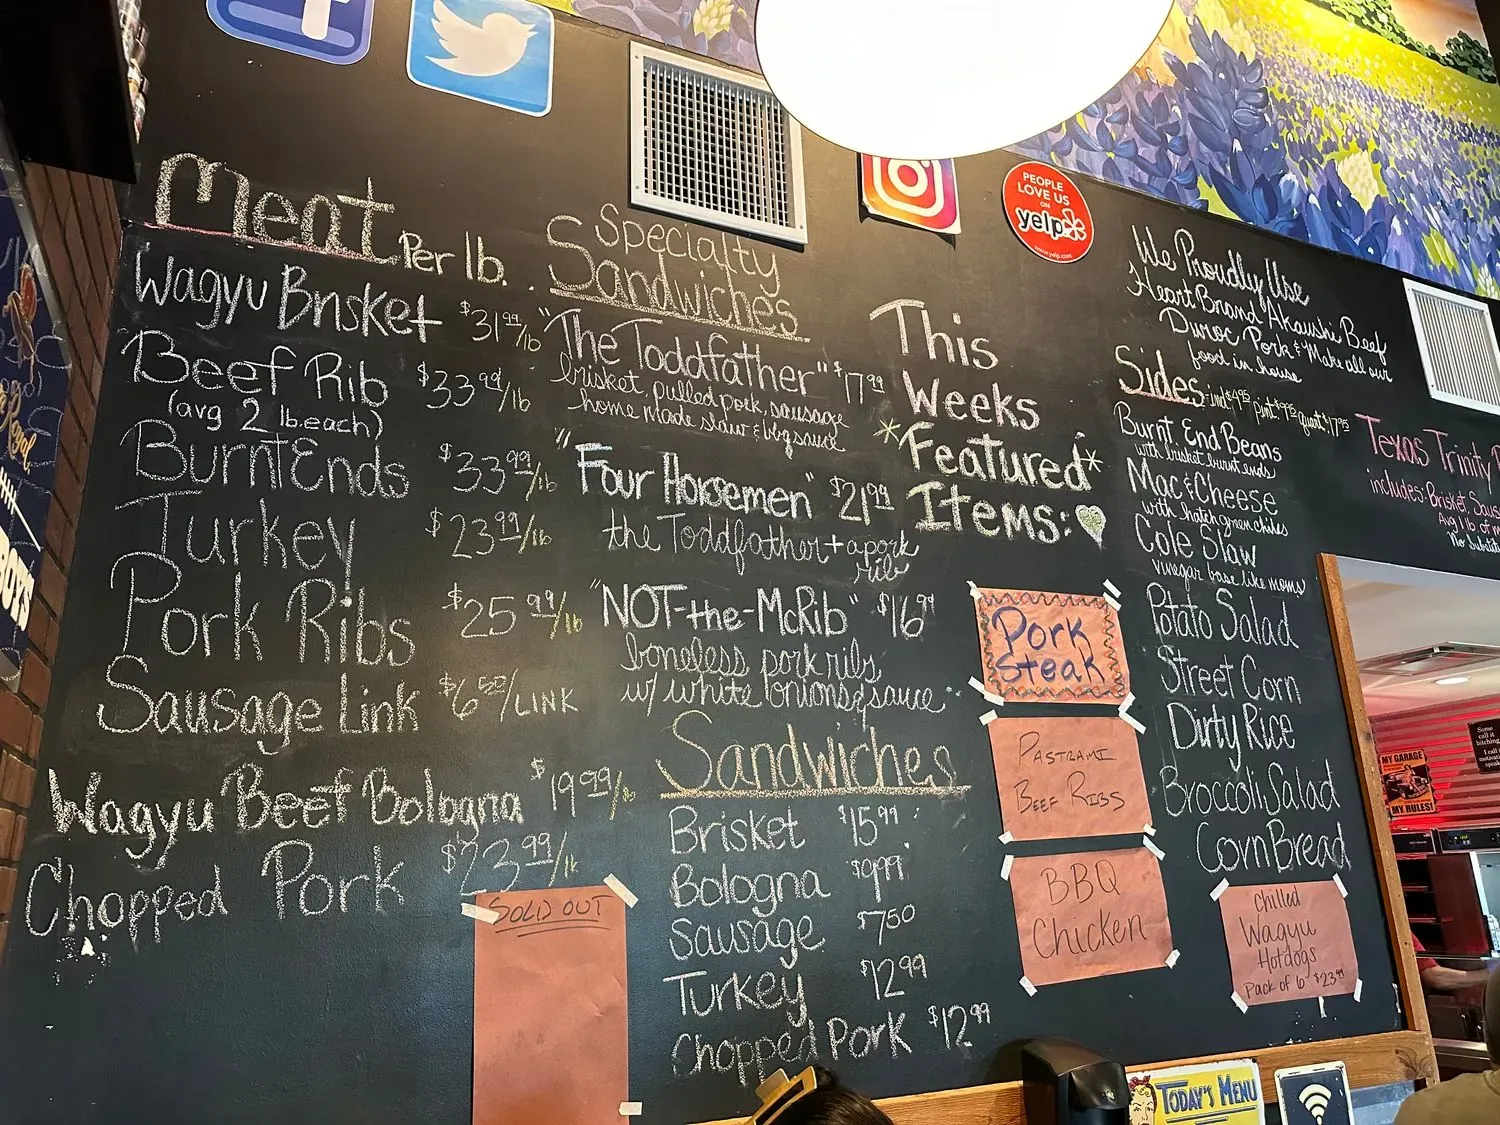 Meat Per lb.
Wagyu Brisket $31.99/lb
Beef Rib $33.99/lb
(avg 2 lb. each)
Burnt Ends $33.99/lb
Turkey $23.99/lb
Pork Ribs $25.99/lb
Sausage Link $6.50/LINK
Wagyu Beef Bologna $19.99/lb
Chopped Pork $23.99/lb
SOLD OUT
Specialty
Sandwiches
"The Toddfather" $17.99
brisket, pulled pork, sausage
home made slaw & bbq sauce
"Four Horsemen" $21.99
the Toddfather + a pork
rib
"NOT-the-McRib" $16.99
boneless pork ribs,
w/ white onions & sauce
Sandwiches
Brisket $15.99
Bologna $9.99
Sausage $7.50
Turkey $12.99
Chopped Pork $12.99
This
Weeks
*Featured*
Items:
Pork
Steak
PASTRAMI
BEEF RIBS
BBQ
Chicken
PEOPLE
LOVE US
ON
yelp
www.yelp.com
We Proudly Use
HeartBrand Akaushi Beef
Duroc Pork & Make all our
food in house
Sides-ind $4.95 pint $9.95 quart $17.95
Burnt End Beans
with brisket burnt ends
Mac & Cheese
with hatch green chiles
Cole Slaw
vinegar base like moms
Potato Salad
Street Corn
Dirty Rice
Broccoli Salad
Corn Bread
Chilled
Wagyu
Hotdogs
Pack of 6 $23.99
Texas Trinity
includes: Brisket, Saus
Avg 1 lb of m
No Substit
MY GARAGE
MY RULES!
Some
call it
bitching
I call
TODAY'S MENU
BOYS